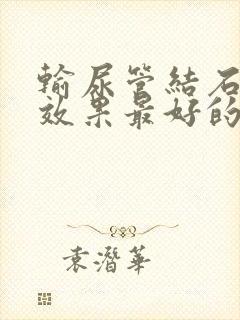 輸尿管結石
效果最好的
袁潛華